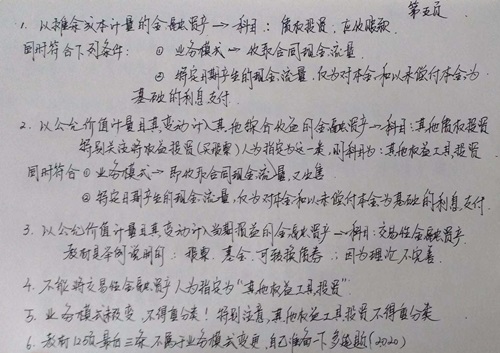 第五页
1. 以摊余成本计量的金融资产→科目：债权投资，应收账款
同时符合下列条件：① 业务模式→收取合同现金流量
② 特定日期产生的现金流量，仅为对本金和以未偿付本金为
基础的利息支付.
2. 以公允价值计量且其变动计入其他综合收益的金融资产→科目：其他债权投资
特别关注将权益投资(买股票)人为指定为这一类，则科目为：其他权益工具投资
同时符合①业务模式→即收取合同现金流量，又出售
② 特定日期产生的现金流量，仅为对本金和以未偿付本金为基础的利息支付.
3. 以公允价值计量且其变动计入当期损益的金融资产→科目：交易性金融资产
教材具举例说明的：股票、基金、可转换债券：因为理由不完善.
4. 不能将交易性金融资产人为指定为"其他权益工具投资"
5. 业务模式改变，不得重分类！特别注意，其他权益工具投资不得重分类
6. 教材12页最后三条不属于业务模式变更，自己准备一下多选题(2020)